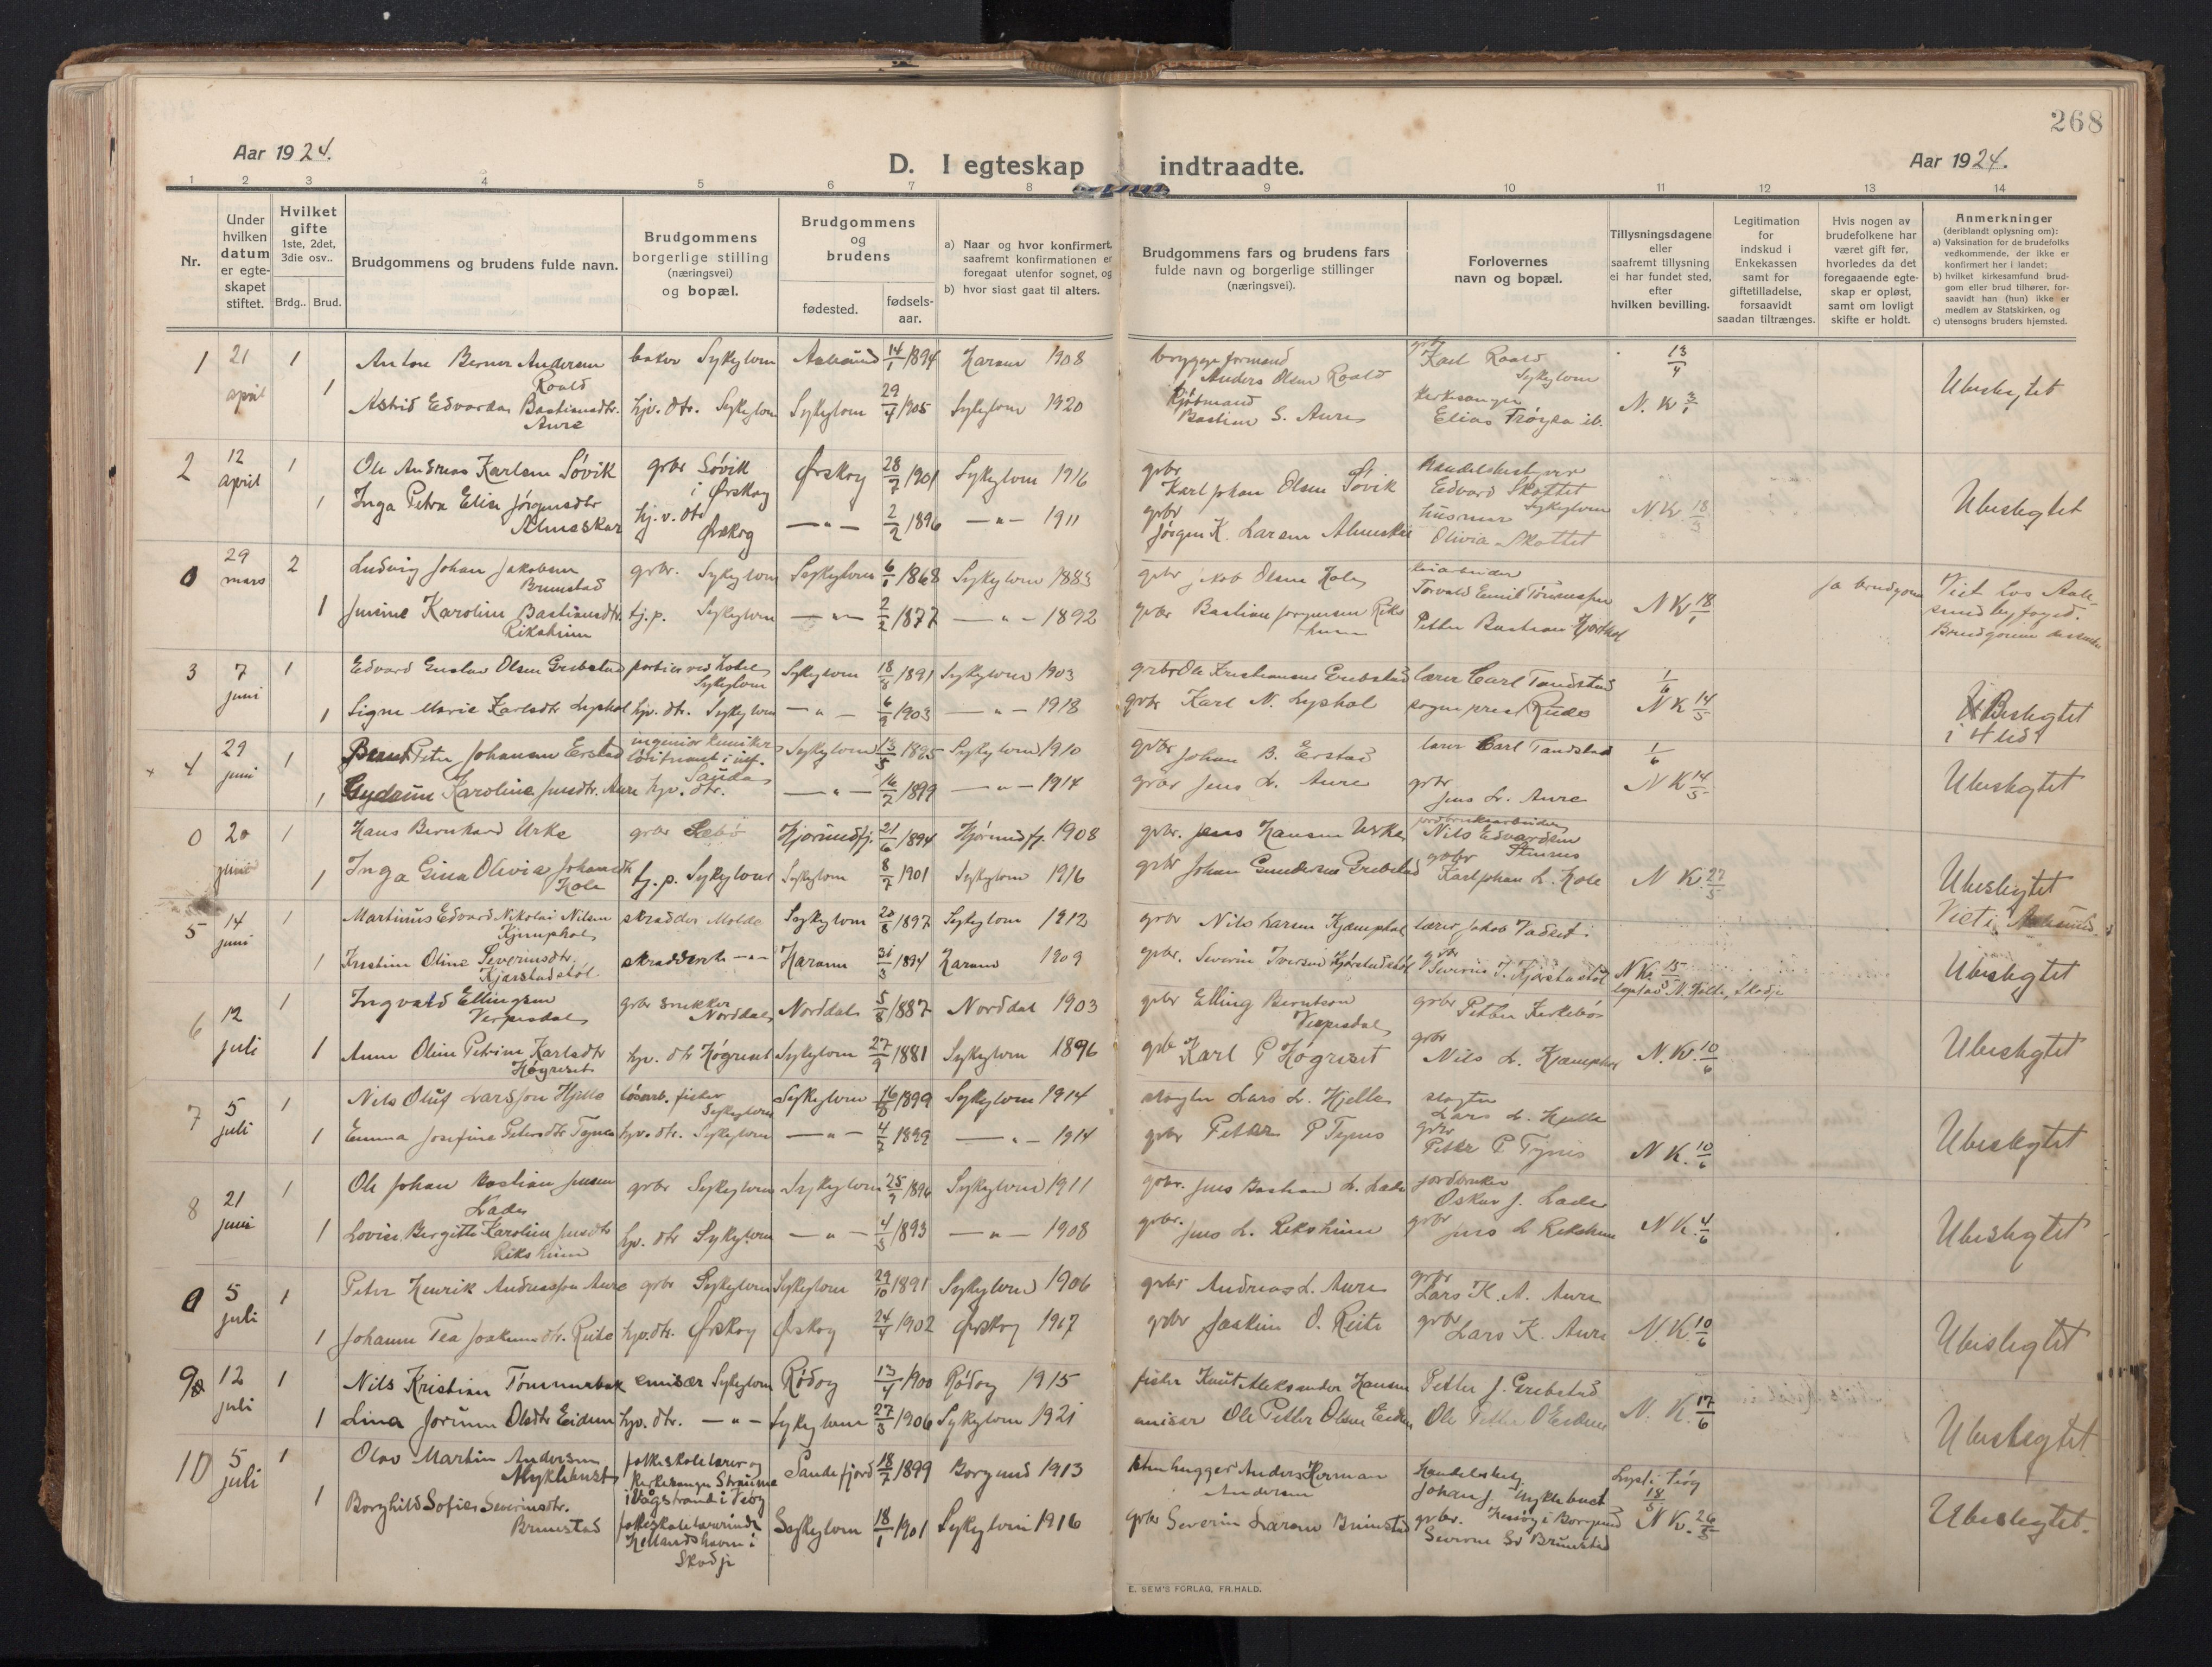 268
Aar 1924.
D. I egteskap indtraadte.
Aar 1924.
1 2 3 4 5 6 7 8 9 10 11 12 13 14
Nr.
Under hvilken datum er egte-skapet stiftet.
Hvilket gifte
1ste, 2det, 3die osv..
Brdg.. Brud.
Brudgommens og brudens fulde navn.
Brudgommens borgerlige stilling (næringsvei) og bopæl.
Brudgommens og brudens
fødested.
fødsels-aar.
a) Naar og hvor konfirmert, saafremt konfirmationen er foregaat utenfor sognet, og
b) hvor sidst gaat til alters.
Brudgommens fars og brudens fars fulde navn og borgerlige stillinger (næringsvei).
Forlovernes navn og bopæl.
Tillysningsdagene eller saafremt tillysning ei har fundet sted, efter hvilken bevilling.
Legitimation for indskud i Enkekassen samt for giftetilladelse, forsaavidt saadan tiltrænges.
Hvis nogen av brudefolkene har været gift før, hvorledes da det foregaaende egte-skap er opløst, samt om lovligt skifte er holdt.
Anmerkninger (deriblandt oplysning om):
a) Vaksination for de brudefolks vedkommende, der ikke er konfirmert her i landet;
b) hvilket kirkesamfund brud-gom eller brud tilhører, for-saavidt han (hun) ikke er medlem av Statskirken, og
c) utensogns bruders hjemsted.
1 21 april 1 Anton Berner Andersen Roald baker Sykylven Aalesund 14/1 1894 Haram 1908 bryggeformand Anders Olsen Roald Karl Roald Sykylven 13/4 Ubeslegtet
1 Astrid Edvarda Bastiansdtr. Aure hjv. dtr. Sykylven Sykylven 29/4 1905 Sykylven 1920 Kjøbmand Bastian S. Aure Kirkesanger Elias Trøyen ib. N. K 3/1
2 12 april 1 Ole Andreas Karlsen Søvik grbr Søvik i Ørskog Ørskog 28/7 1901 Sykylven 1916 grbr Karl Johan Olsen Søvik Handelsbestyrer Edvard Skottet Sykylven Ubeslegtet
1 Inga Petra Elise Jørgensdtr Almeskar hj. v. dtr Ørskog — " — 2/2 1896 — " — 1911 grbr Jørgen K. Larsen Almeskar husmor Olivia Skottet N. K. 18/3
0 29 mars 2 Ludvig Johan Jakobsen Brunstad grbr. Sykylven Sykylven 6/1 1868 Sykylven 1883 grbr Jakob Olsen Hole Torvald Emil Tønnessen ja brudgom Viet hos Aale-sund byfoged.
1 Jensine Karoline Bastiansdtr. Riksheim tj. p. Sykylven — " — 2/2 1877 — " — 1892 grbr Bastian Jørgensen Riksheim Petter Bastian Hjorthol N K 18/1 Brudgom
3 7 juni 1 Edvard Gustav Olsen Grebstad portier ved hotel Sykylven Sykylven 18/8 1891 Sykylven 1903 grbr Ole Kristiansen Grebstad lærer Carl Tandstad 1/6
1 Signe Marie Karlsdtr Lyshol hjv. dtr. Sykylven — " — 6/9 1903 — " — 1918 grbr Karl N. Lyshol sogneprest Ruud N K 14/5 Beslegtet i 4 led
4 29 juni 1 Bernt Peter Johansen Erstad ingeniør kemiker løitnant i inf. Sauda Sykylven 13/5 1895 Sykylven 1910 grbr Johan B. Erstad lærer Carl Tandstad 1/6
1 Gudrun Karoline Jensdtr. Aure hjv. dtr. — " — 16/2 1899 — " — 1914 grbr Jens L. Aure grbr Jens L. Aure N K 14/5 Ubeslegtet
0 20 juni 1 Hans Bernhard Urke grbr Sæbø Hjørundfj. 21/6 1894 Hjørundfj. 1908 grbr. Jens Hansen Urke jordbruksarbeider Nils Edvardsen
1 Inga Gina Olivia Johansdtr Hole tj. p. Sykylven Sykylven 8/7 1901 Sykylven 1916 grbr Johan Gundersen Grebstad grbr Karl Johan L. Hole N K. 27/5 Ubeslegtet
5 14 juni 1 Martinus Edvard Nikolai Nilsen Kjemphol skrædder Molde Sykylven 20/8 1897 Sykylven 1912 grbr Nils Larsen Kjæmphol lærer Jakob Vadset Viet i Aalesund.
1 Kristine Oline Severinsdtr. Kjærstadstøl skrædderske — " — Haram 31/3 1894 Haram 1909 grbr. Severin Iversen Kjærstadstøl grbr Severin I. Kjærstadstøl N K. 15/5 Ubeslegtet
6 12 juli 1 Ingvald Ellingsen Verpesdal grbr snekker Norddal Norddal 5/8 1887 Norddal 1903 grbr Elling Berntsen Verpesdal grbr Petter Kirkebø
1 Anne Oline Petrine Karlsdtr Høgreset hjv. dtr Høgreset Sykylven 27/9 1881 Sykylven 1896 grbr Karl P Høgreset grbr Nils L. Kjæmphol N. K. 10/6 Ubeslegtet
7 5 juli 1 Nils Oluf Larsson Hjelle løsarb. fisker Sykylven Sykylven 16/8 1899 Sykylven 1914 slagter Lars L. Hjelle slagter Lars L. Hjelle
1 Emma Josefine Petersdtr Tynes hjv. dtr. Sykylven — " — 4/7 1899 — " — 1914 grbr Petter P Tynes grbr Petter P Tynes N K. 10/6 Ubeslegtet
8 21 juni 1 Ole Johan Bastian Jensen Lade grbr Sykylven Sykylven 25/9 1896 Sykylven 1911 grbr. Jens Bastian L. Lade jordbruker Oskar J. Lade
1 Lovise Birgitte Karoline Jensdtr Riksheim hjv. dtr Sykylven — " — 4/3 1893 — " — 1908 grbr. Jens L. Riksheim grbr Jens L Riksheim N. K. 4/6 Ubeslegtet
0 5 juli 1 Peter Henrik Andreassen Aure grbr Sykylven Sykylven 29/10 1891 Sykylven 1906 grbr Andreas L. Aure grbr Lars K. A. Aure
1 Johanne Tea Joakimsdtr. Reite hjv. dtr. Ørskog Ørskog 24/4 1902 Ørskog 1917 grbr Joakim O. Reite grbr Lars K. Aure N. K. 10/6 Ubeslegtet
9 12 juli 1 Nils Kristian Tømmerbak emisær Sykylven Rødøy 13/4 1900 Rødøy 1915 fisker Knut Aleksander Hansen Petter J. Grebstad
1 Lina Jorunn Olsdtr Eidem hjv. dtr. — " — Sykylven 27/3 1906 Sykylven 1921 emisær Ole Petter Olsen Eidem Ole Petter O Eidem N. K. 17/6 Ubeslegtet
10 5 juli 1 Olav Martin Andersen Myklebust folkeskolelærer og kirkesanger Straume i Vågstranda i Veøy Sandefjord 18/7 1899 Borgund 1913 stenhugger Anders Herman Andersen Handelsbetj. Johan J. Myklebust i Borgund Lyst i Veøy 18/5
1 Borghild Sofie Severinsdtr. Brunstad folkeskolelærerinde i Skodje Sykylven 18/1 1901 Sykylven 1916 grbr Severin Larsen Brunstad grbr. Severin Brunstad N K. 26/5 Ubeslegtet.
E. SEM'S FORLAG, FR.HALD.